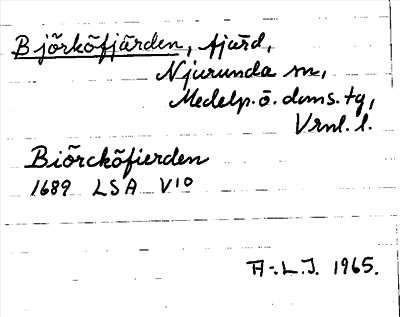 Björköfjärden, fjärd,
Njurunda sn,
Medelp. ö. doms. tg,
Vrnl. l.
Biörcköfierden
1689 LSA V10
A-.L.J. 1965.